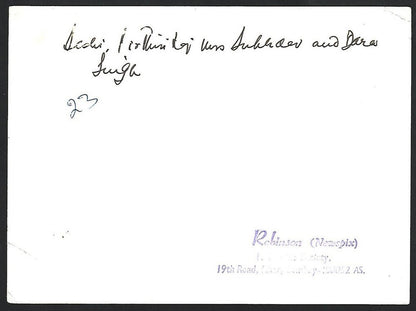 Prithiraj Mrs Sukhdev and Dara
Singh
23
Robinson (Newspix)
Society,
19th Road, Bombay-400052 AS.